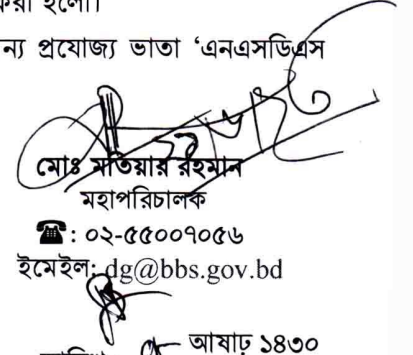 করা হলো।
ন্য প্রযোজ্য ভাতা ‘এনএসডিএস
মোঃ মতিয়ার রহমান
মহাপরিচালক
☎: ০২-৫৫০০৭০৫৬
ইমেইল: dg@bbs.gov.bd
আষাঢ় ১৪৩০